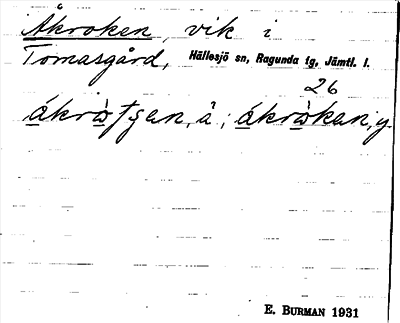 Åkroken, vik i
Tomasgård, Hällesjö sn, Ragunda tg, Jämtl. l.
26
ákrò̱tgen, ä; ákrò̱ken, y.
E. BURMAN 1931